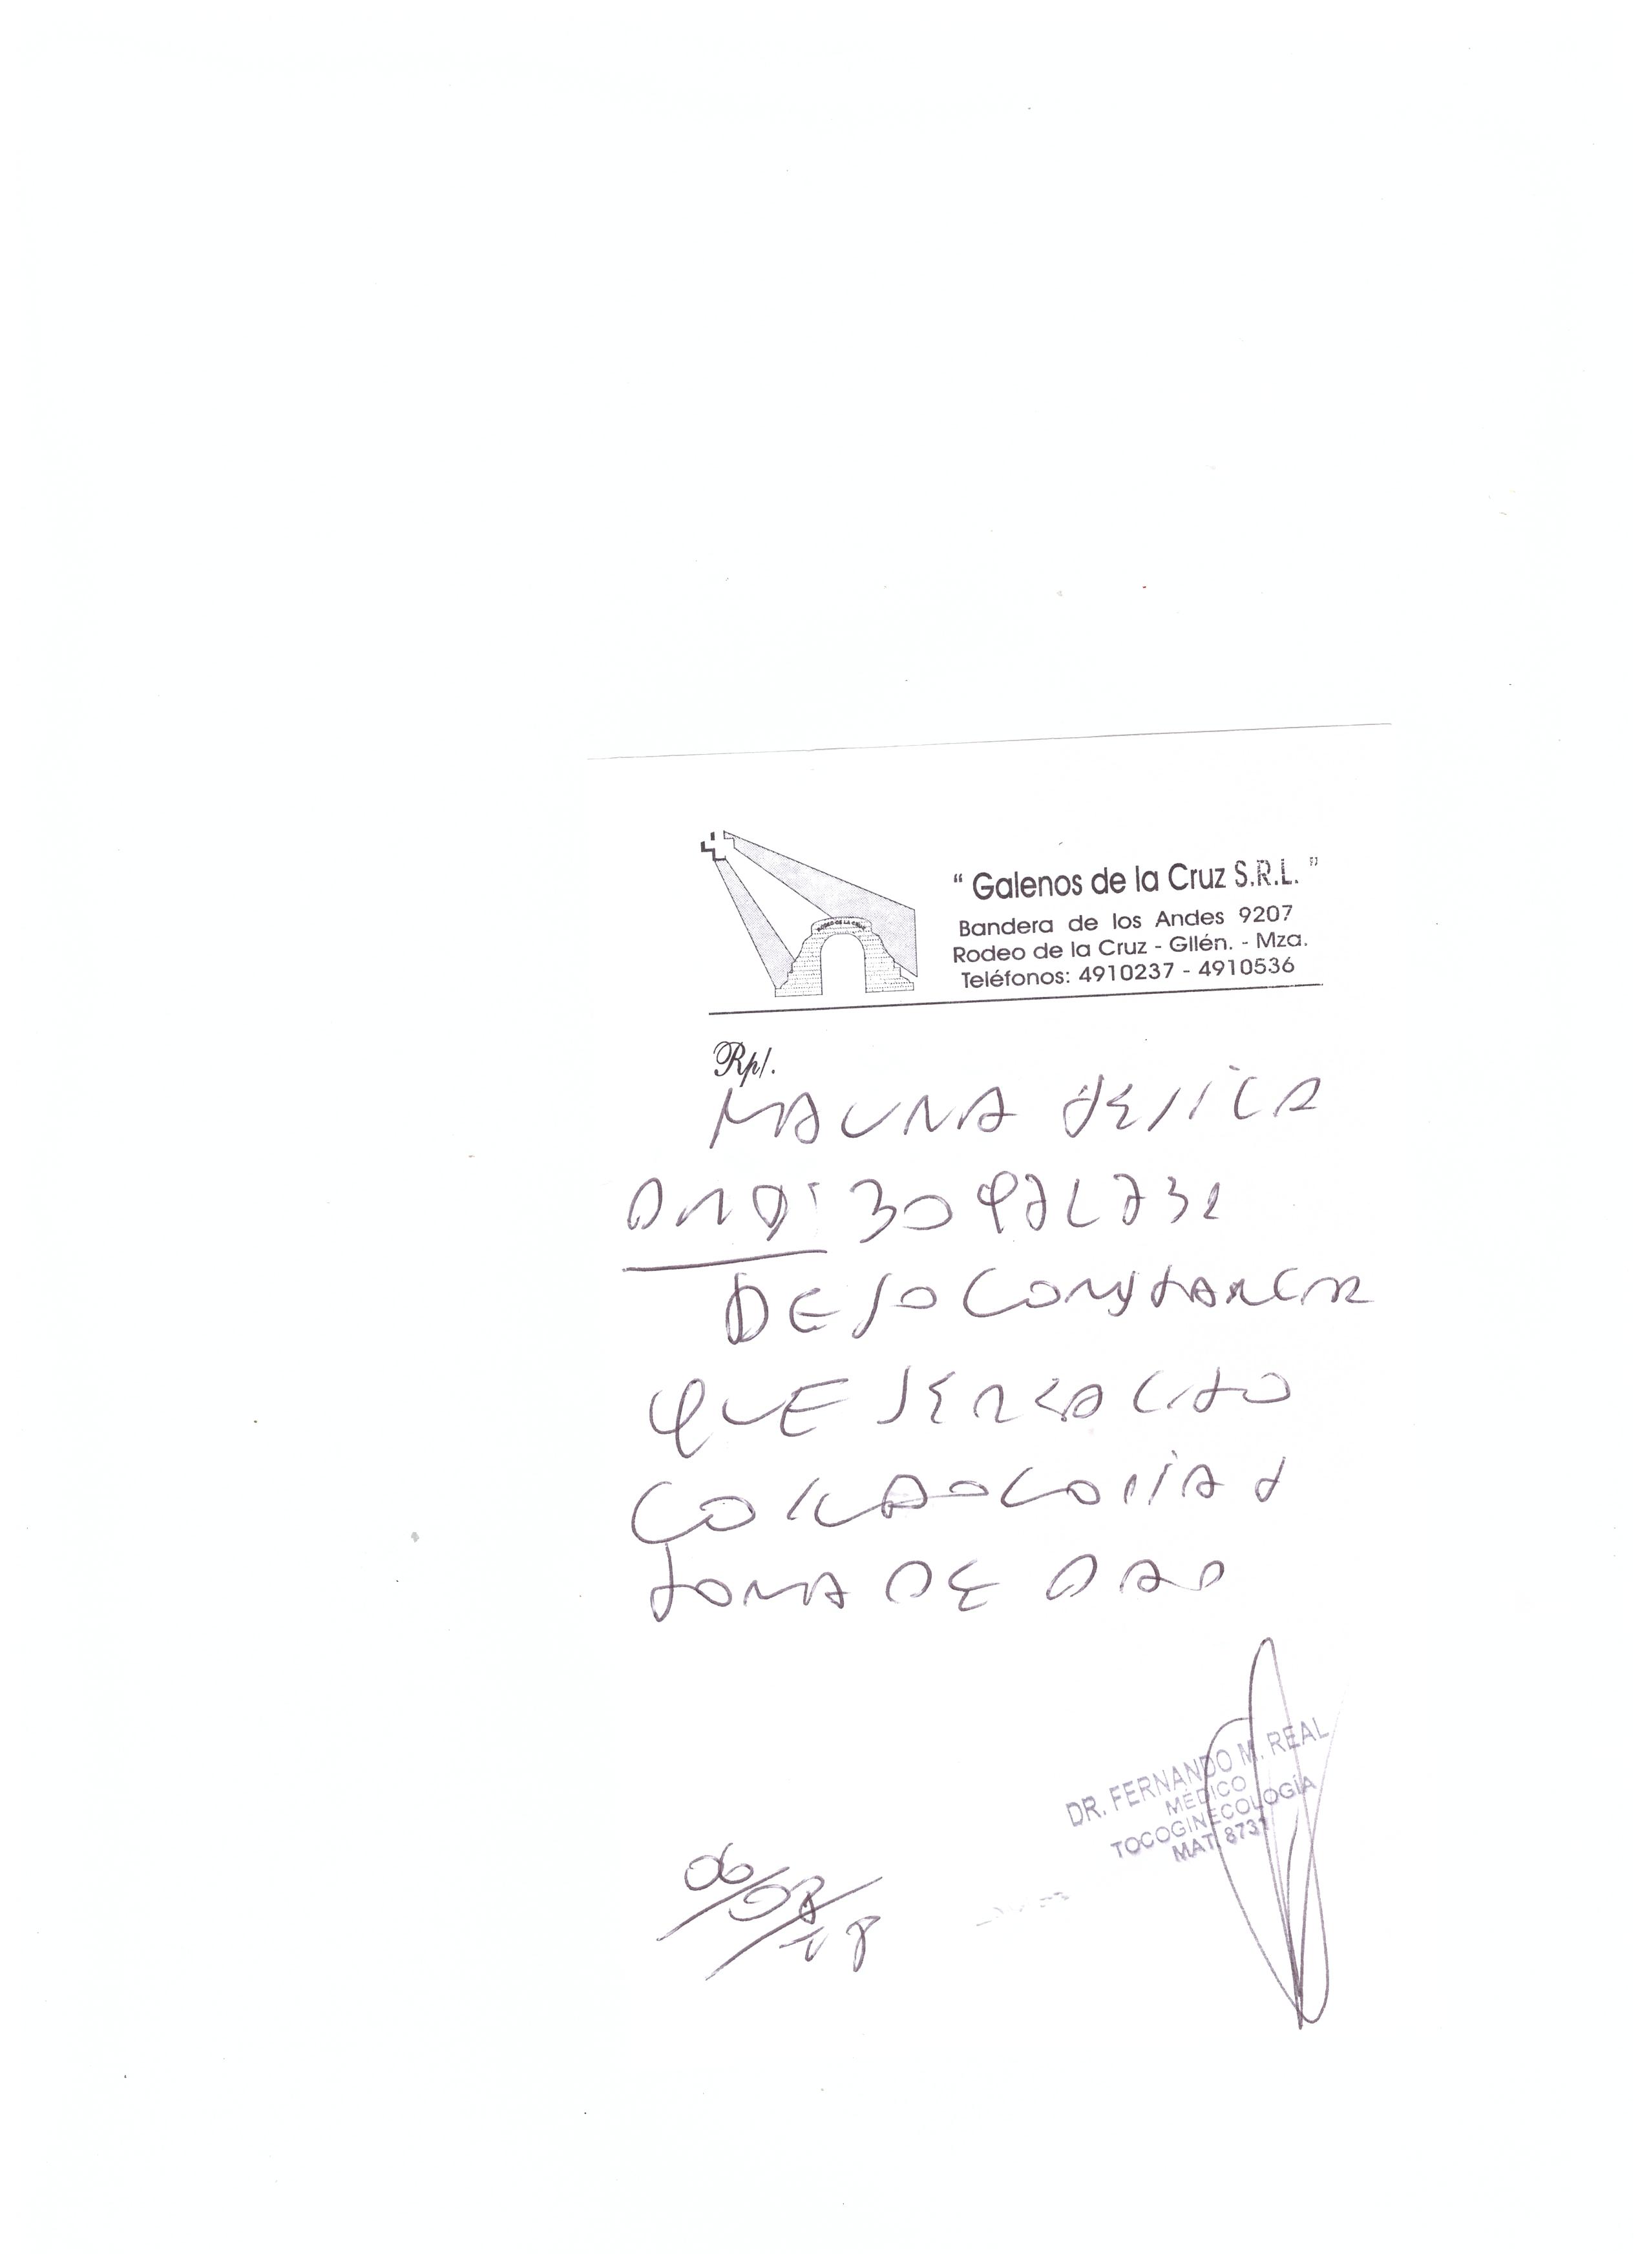 RODEO DE LA CRUZ
“ Galenos de la Cruz S.R.L. ”
Bandera de los Andes 9207
Rodeo de la Cruz - Gllén. - Mza.
Teléfonos: 4910237 - 4910536
Rp/.
MAUNA JESICA
DEJO CONSTANCIA
QUE SE REALIZO
COLPOSCOPIA Y
TOMA DE PAP
DR. FERNANDO M. REAL
MÉDICO
TOCOGINECOLOGÍA
MAT. 8731
06/03/18